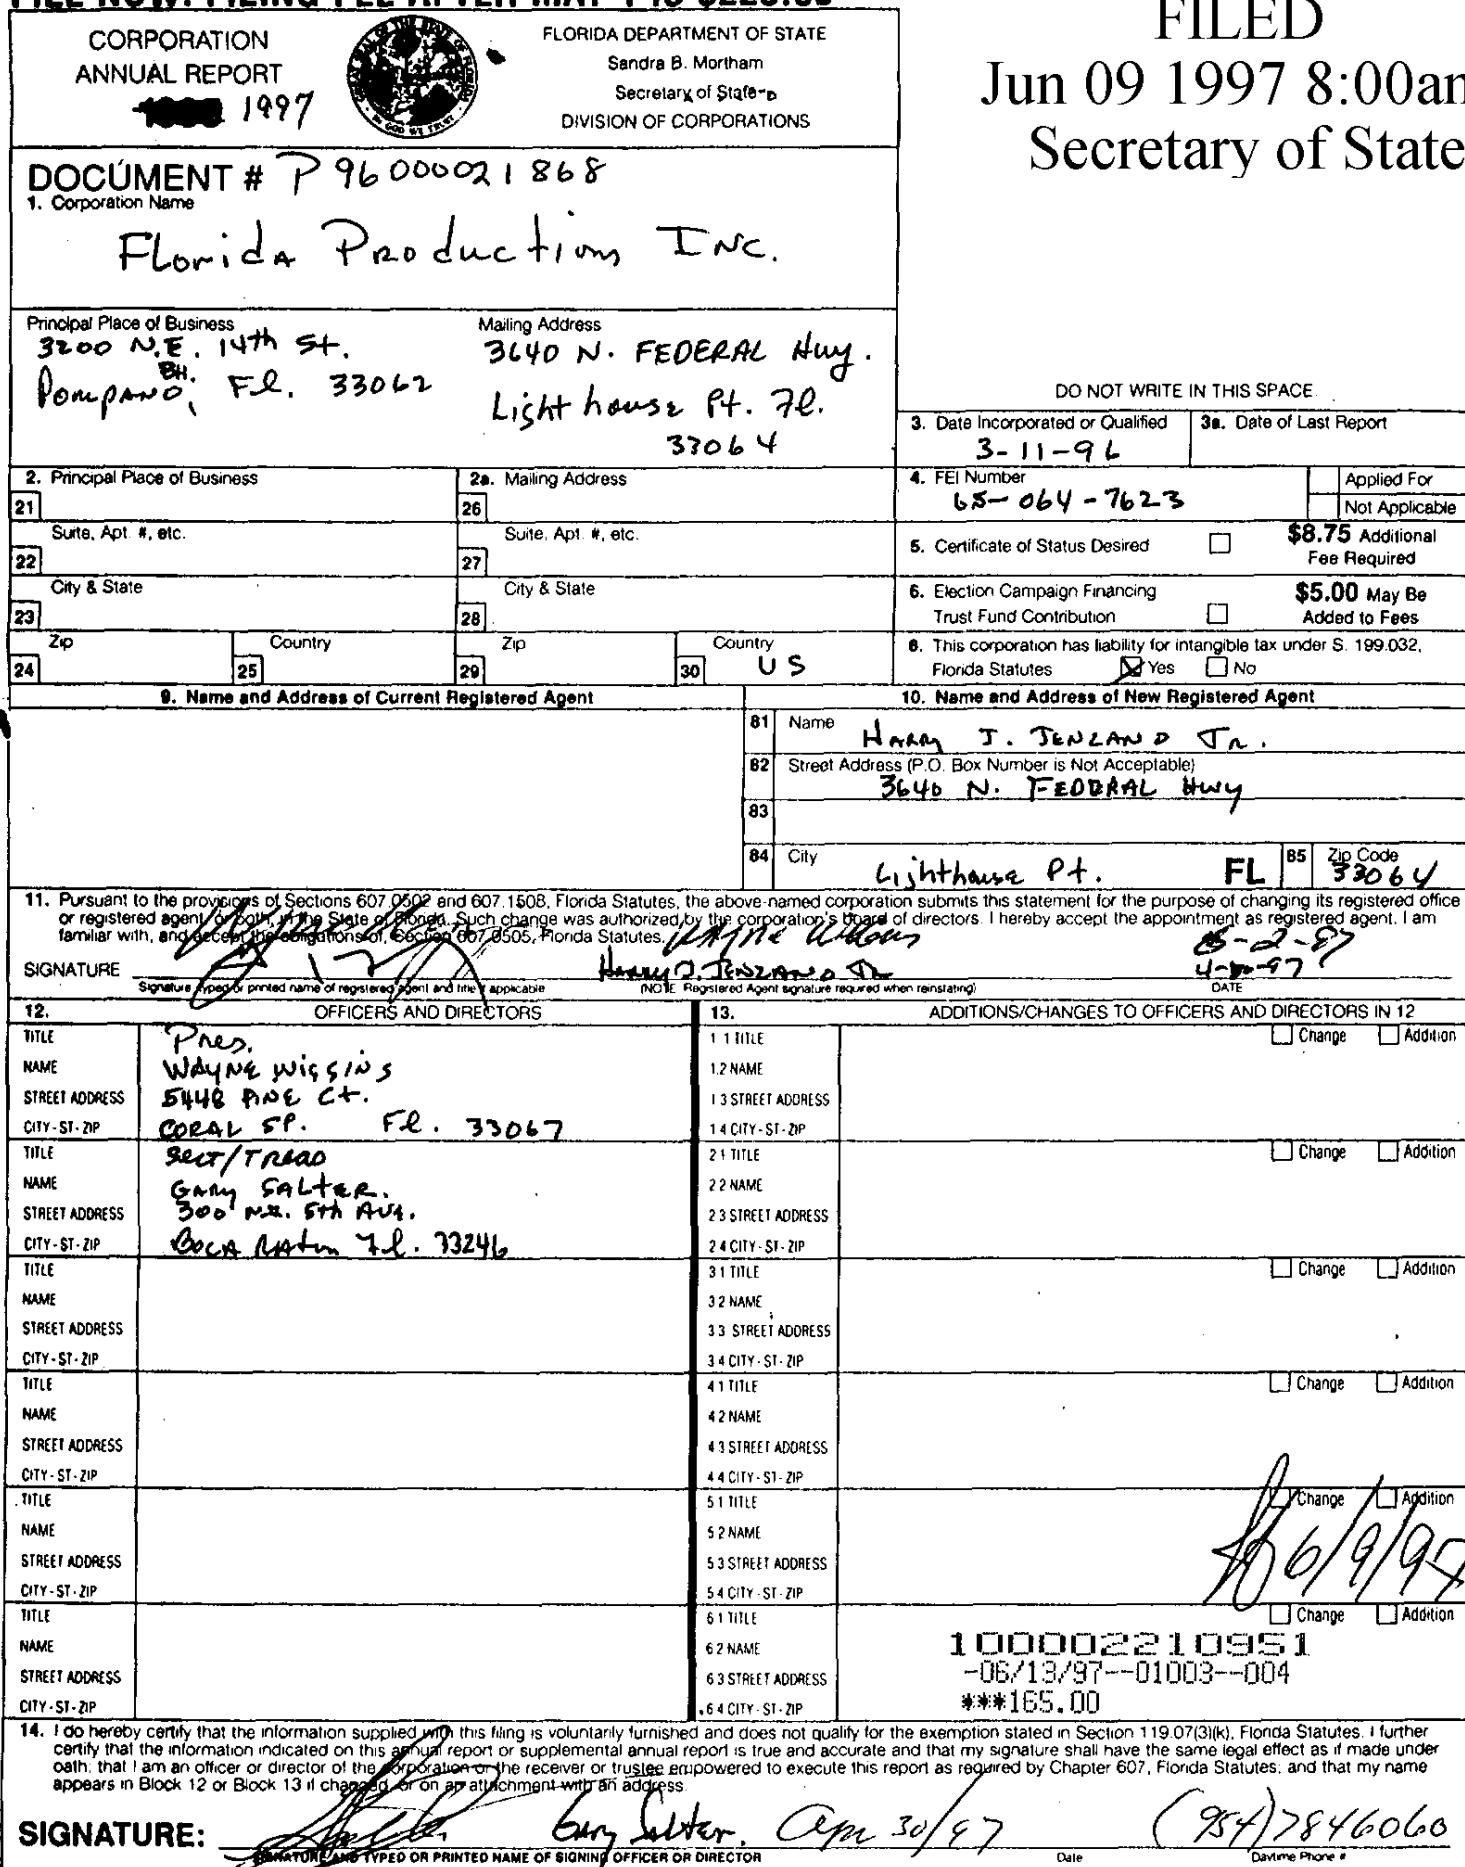 FILE NOW: FILING FEE AFTER MAY 1 IS $225.00
CORPORATION
ANNUAL REPORT
1997
FLORIDA DEPARTMENT OF STATE
Sandra B. Mortham
Secretary of State
DIVISION OF CORPORATIONS
FILED
Jun 09 1997 8:00am
Secretary of State
DOCUMENT # P96000021868
1. Corporation Name
Florida Productions Inc.
Principal Place of Business
3200 N.E. 14th St.
Pompano BH. Fl. 33062
Mailing Address
3640 N. FEDERAL Hwy.
Lighthouse Pt. Fl.
33064
DO NOT WRITE IN THIS SPACE
3. Date Incorporated or Qualified
3-11-96
3a. Date of Last Report
2. Principal Place of Business
21
2a. Mailing Address
26
4. FEI Number
65-064-7623
Applied For
Not Applicable
Suite, Apt. #, etc.
22
Suite, Apt. #, etc.
27
5. Certificate of Status Desired
$8.75 Additional
Fee Required
City & State
23
City & State
28
6. Election Campaign Financing
Trust Fund Contribution
$5.00 May Be
Added to Fees
Zip
24
Country
25
Zip
29
Country
30 US
8. This corporation has liability for intangible tax under S. 199.032,
Florida Statutes Yes No
9. Name and Address of Current Registered Agent
10. Name and Address of New Registered Agent
81 Name
HARRY J. JENZANO Jr.
82 Street Address (P.O. Box Number is Not Acceptable)
3640 N. FEDERAL Hwy
83
84 City
Lighthouse Pt. FL
85 Zip Code
33064
11. Pursuant to the provisions of Sections 607.0502 and 607.1508, Florida Statutes, the above-named corporation submits this statement for the purpose of changing its registered office
or registered agent, or both, in the State of Florida. Such change was authorized by the corporation's board of directors. I hereby accept the appointment as registered agent. I am
familiar with, and accept the obligations of, Section 607.0505, Florida Statutes.
SIGNATURE
HARRY J. JENZANO Jr
Signature typed or printed name of registered agent and title if applicable
(NOTE Registered Agent signature required when reinstating)
DATE
12. OFFICERS AND DIRECTORS
13. ADDITIONS/CHANGES TO OFFICERS AND DIRECTORS IN 12
TITLE Pres.
NAME WAYNE WIGGINS
STREET ADDRESS 5448 PINE Ct.
CITY-ST-ZIP CORAL SP. Fl. 33067
1 1 TITLE Change Addition
1.2 NAME
1 3 STREET ADDRESS
1 4 CITY-ST-ZIP
TITLE Sect/Treas
NAME GARY SALTER.
STREET ADDRESS 300 N.E. 5th Ave.
CITY-ST-ZIP BOCA Raton Fl. 33246
2 1 TITLE Change Addition
2 2 NAME
2 3 STREET ADDRESS
2 4 CITY-ST-ZIP
TITLE
NAME
STREET ADDRESS
CITY-ST-ZIP
3 1 TITLE Change Addition
3 2 NAME
3 3 STREET ADDRESS
3 4 CITY-ST-ZIP
TITLE
NAME
STREET ADDRESS
CITY-ST-ZIP
4 1 TITLE Change Addition
4 2 NAME
4 3 STREET ADDRESS
4 4 CITY-ST-ZIP
TITLE
NAME
STREET ADDRESS
CITY-ST-ZIP
5 1 TITLE Change Addition
5 2 NAME
5 3 STREET ADDRESS
5 4 CITY-ST-ZIP
6/9/97
TITLE
NAME
STREET ADDRESS
CITY-ST-ZIP
6 1 TITLE Change Addition
6 2 NAME
6 3 STREET ADDRESS
6 4 CITY-ST-ZIP
100002210951
-06/13/97--01003--004
***165.00
14. I do hereby certify that the information supplied with this filing is voluntarily furnished and does not qualify for the exemption stated in Section 119.07(3)(k), Florida Statutes. I further
certify that the information indicated on this annual report or supplemental annual report is true and accurate and that my signature shall have the same legal effect as if made under
oath; that I am an officer or director of the corporation or the receiver or trustee empowered to execute this report as required by Chapter 607, Florida Statutes; and that my name
appears in Block 12 or Block 13 if changed, or on an attachment with an address.
SIGNATURE: Gary Salter. Apr 30/97 (954)7846060
SIGNATURE AND TYPED OR PRINTED NAME OF SIGNING OFFICER OR DIRECTOR
Date
Daytime Phone #